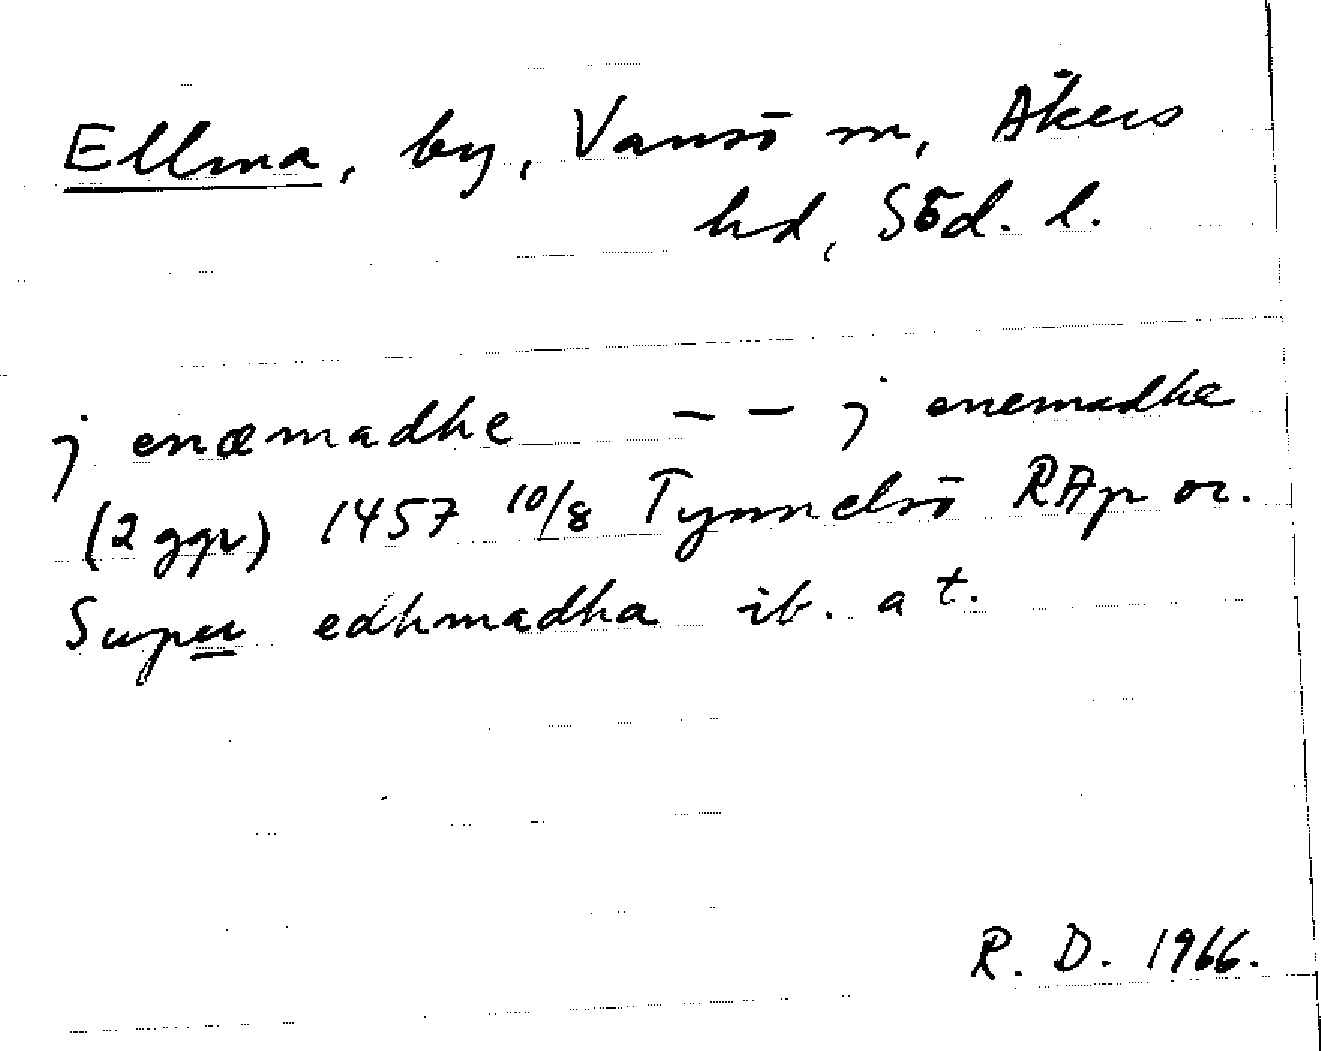 Ellma, by, Vansö sn, Åkers
hd, Söd. l.
j enæmadhe — — j enemadhe
(2 ggr) 1457 10/8 Tynnelsö RAp or.
Super edhmadha ib. a t.
R. D. 1966.